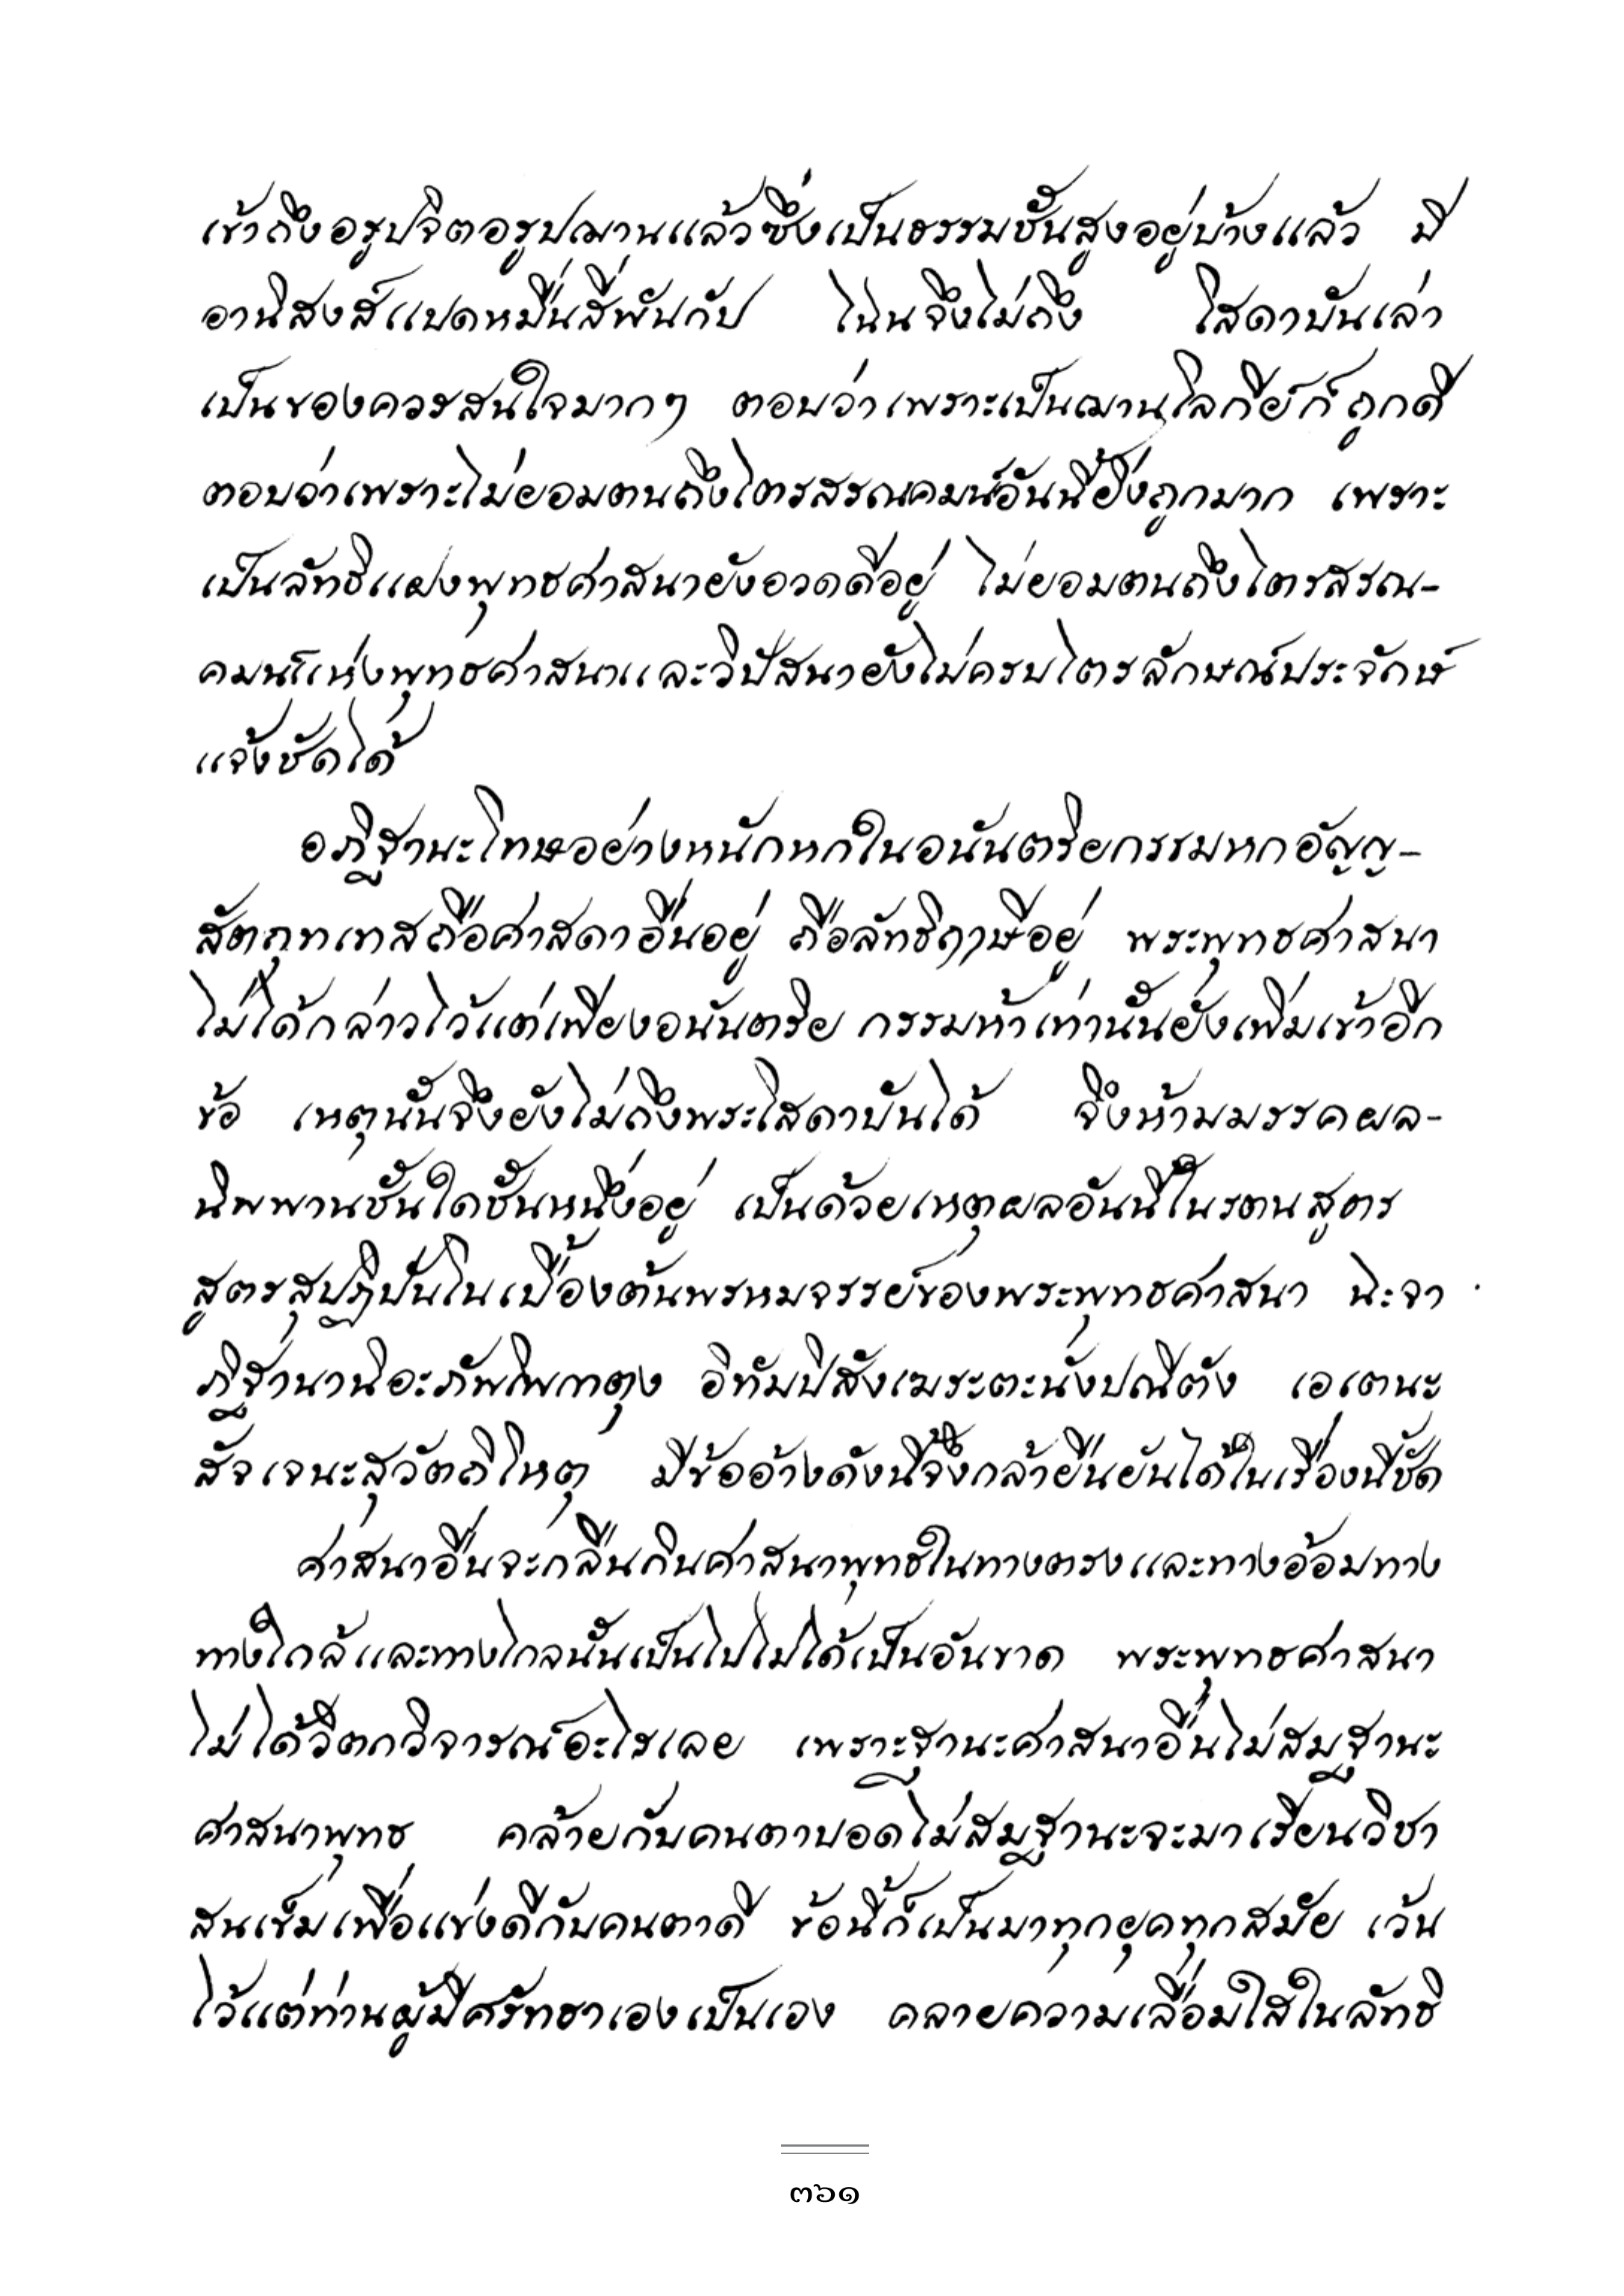 เข้าถึงอรูปจิตอรูปฌานแล้วซึ่งเป็นธรรมชั้นสูงอยู่บ้างแล้ว มี
อานิสงส์แปดหมื่นสี่พันกัป ไฉนจึงไม่ถึง โสดาบันเล่า
เป็นของควรสนใจมากๆ ตอบว่าเพราะเป็นฌานโลกีย์ก็ถูกดี
ตอบว่าเพราะไม่ยอมตนถึงไตรสรณคมน์อันนี้ยิ่งถูกมาก เพราะ
เป็นลัทธิแฝงพุทธศาสนายังอวดดีอยู่ ไม่ยอมตนถึงไตรสรณ-
คมน์แห่งพุทธศาสนาและวิปัสนายังไม่ครบไตรลักษณ์ประจักษ์
แจ้งชัดได้
อภิฐานะโทษอย่างหนักหกในอนันตริยกรรมหกอัญญ-
สัตถุทเทสถือศาสดาอื่นอยู่ ถือลัทธิฤาษีอยู่ พระพุทธศาสนา
ไม่ได้กล่าวไว้แต่เพียงอนันตริย กรรมห้าเท่านั้นยังเพิ่มเข้าอีก
ข้อ เหตุนั้นจึงยังไม่ถึงพระโสดาบันได้ จึงห้ามมรรคผล-
นิพพานชั้นใดชั้นหนึ่งอยู่ เป็นด้วยเหตุผลอันนี้ในรตนสูตร
สูตรสุปฏิปันโนเบื้องต้นพรหมจรรย์ของพระพุทธศาสนา ฉะจา
ภิฐานานิอะภัพโพกาตุง อิทัมปิสังเฆระตะนังปณีตัง เอเตนะ
สัจเจนะสุวัตถิโหตุ มีข้ออ้างดังนี้จึงกล้ายืนยันได้ในเรื่องนี้ชัด
ศาสนาอื่นจะกลืนกินศาสนาพุทธในทางตรงและทางอ้อมทาง
ทางใกล้และทางไกลนั้นเป็นไปไม่ได้เป็นอันขาด พระพุทธศาสนา
ไม่ได้วิตกวิจารณ์อะไรเลย เพราะฐานะศาสนาอื่นไม่สมฐานะ
ศาสนาพุทธ คล้ายกับคนตาบอดไม่สมฐานะจะมาเรียนวิชา
สนเข็มเพื่อแข่งดีกับคนตาดี ข้อนี้ก็เป็นมาทุกยุคทุกสมัย เว้น
ไว้แต่ท่านผู้มีศรัทธาเองเป็นเอง คลายความเลื่อมใสในลัทธิ
๓๖๑